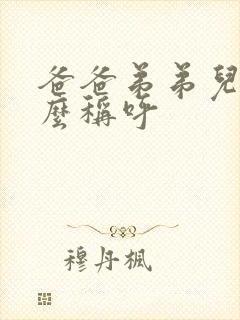 爸爸弟弟兒
麼稱呼
穆丹楓